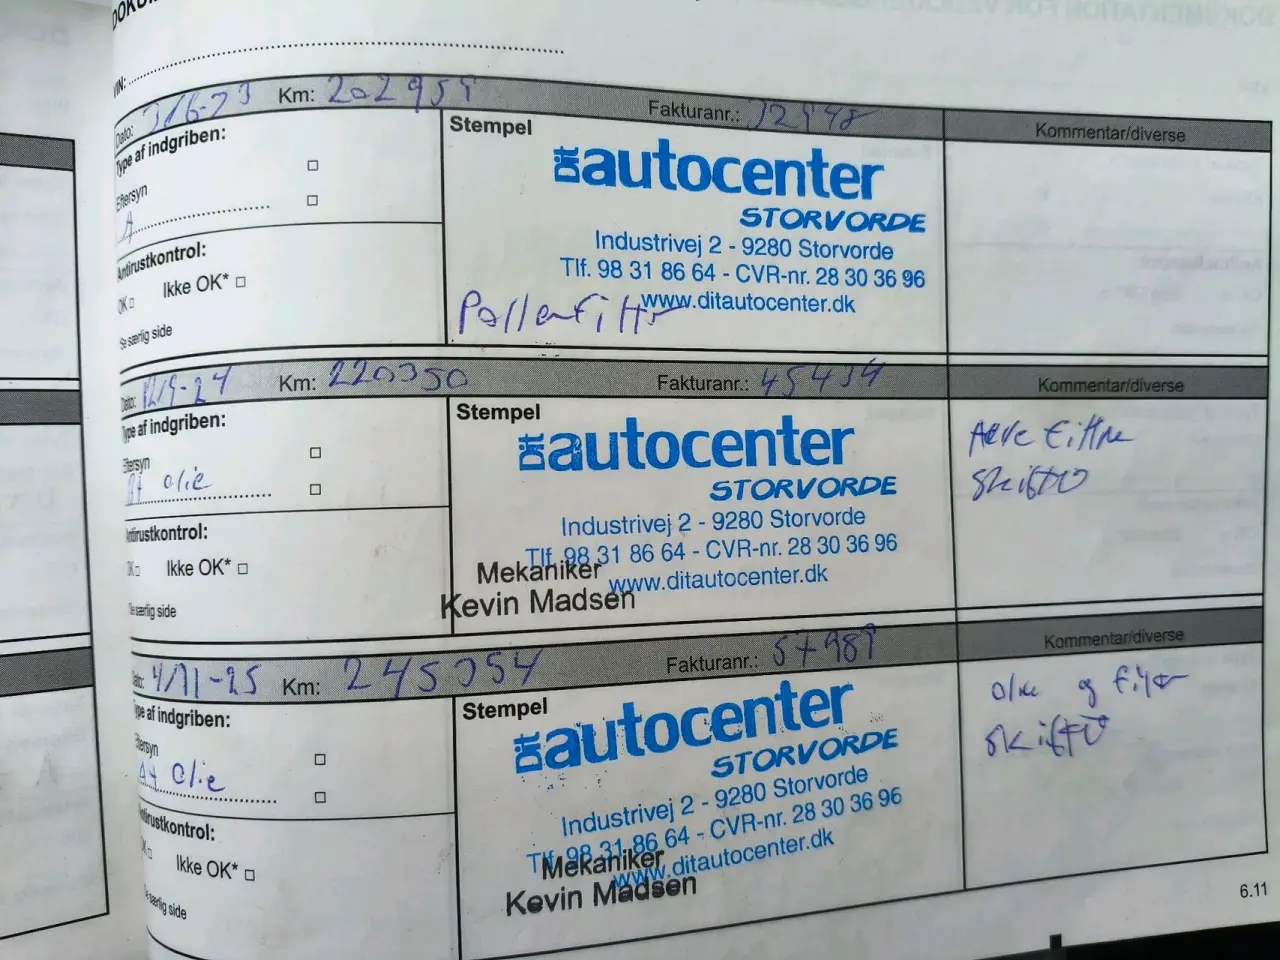 VIN:
Dato: Km: 202959 Fakturanr.: Kommentar/diverse
Type af indgriben:
Eftersyn
A
Antirustkontrol:
OK Ikke OK*
Se særlig side
Stempel
Dit autocenter
STORVORDE
Industrivej 2 - 9280 Storvorde
Tlf. 98 31 86 64 - CVR-nr. 28 30 36 96
www.ditautocenter.dk
Pollenfilter
Dato: 12/9-24 Km: 220350 Fakturanr.: 45454 Kommentar/diverse
Type af indgriben:
Eftersyn
A+ olie
Antirustkontrol:
OK Ikke OK*
Se særlig side
Stempel
Dit autocenter
STORVORDE
Industrivej 2 - 9280 Storvorde
Tlf. 98 31 86 64 - CVR-nr. 28 30 36 96
www.ditautocenter.dk
Mekaniker
Kevin Madsen
filtre
skiftet
Dato: 4/11-25 Km: 245054 Fakturanr.: 57989 Kommentar/diverse
Type af indgriben:
Eftersyn
A+ olie
Antirustkontrol:
OK Ikke OK*
Se særlig side
Stempel
Dit autocenter
STORVORDE
Industrivej 2 - 9280 Storvorde
Tlf. 98 31 86 64 - CVR-nr. 28 30 36 96
www.ditautocenter.dk
Mekaniker
Kevin Madsen
Olie og filter
skiftet
6.11